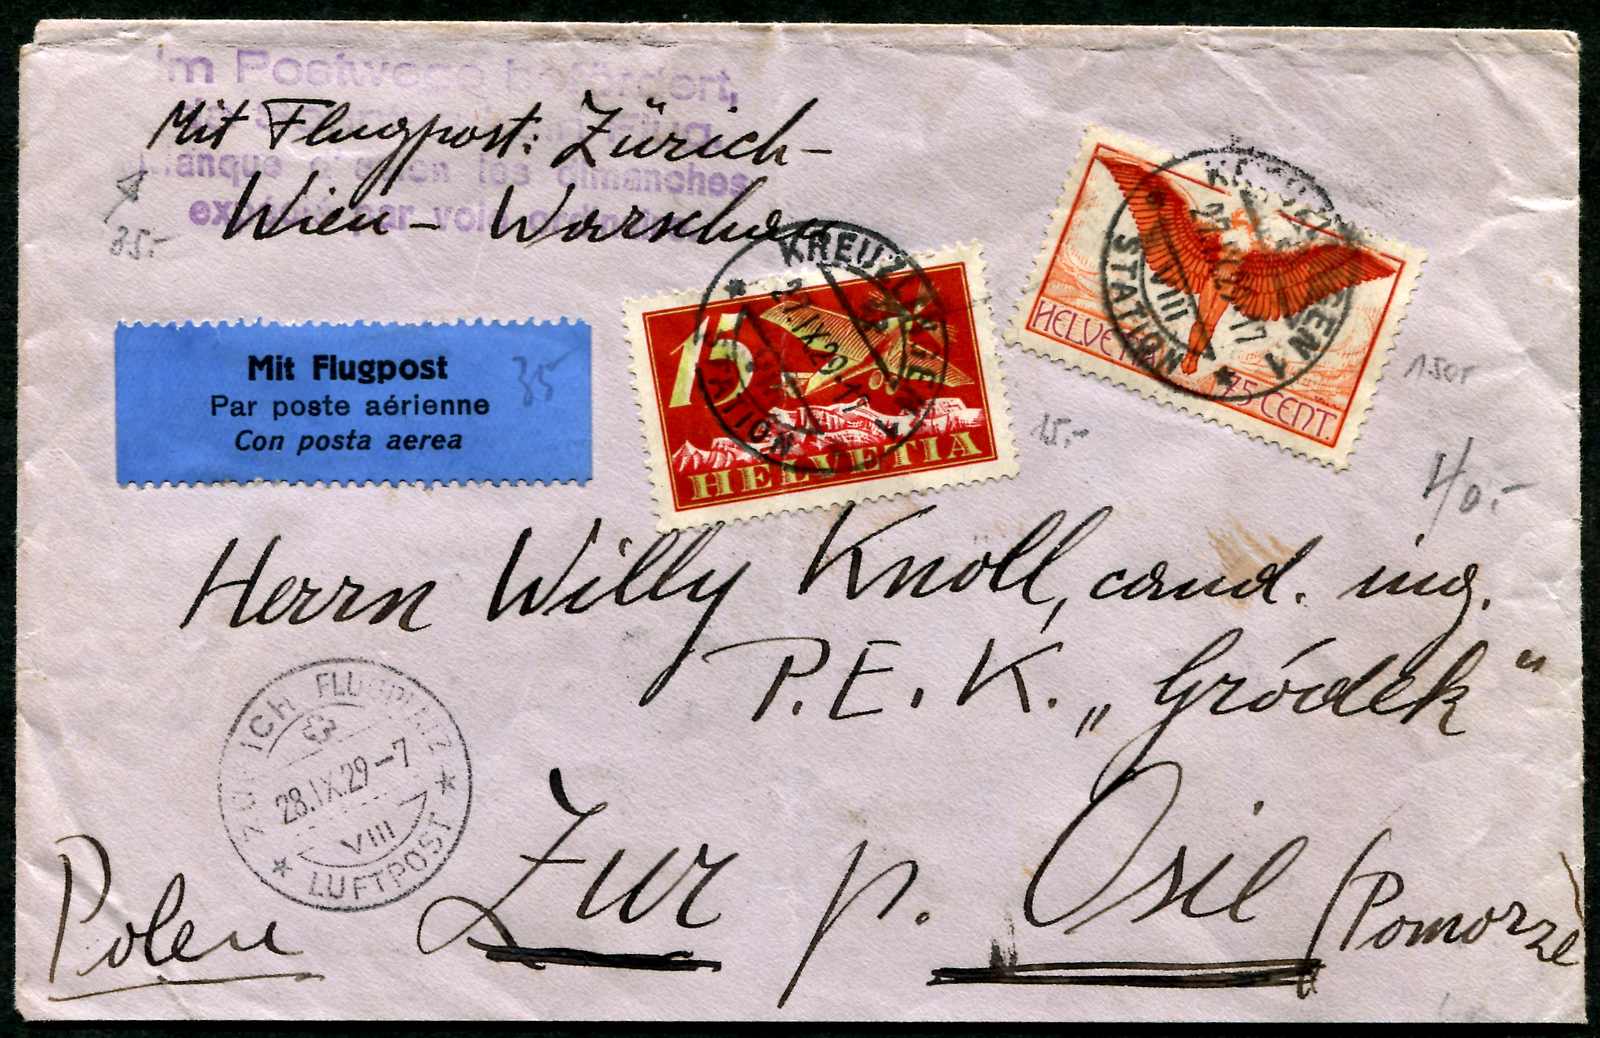 Im Postwege befördert,
Mit Flugpost: Zürich-
manque d'avion les dimanches
Wien - Warschau
par voie
35.-
Mit Flugpost
Par poste aérienne
Con posta aerea
35
KREUZLINGEN 1
27.IX.29.-17
STATION
15
HELVETIA
15.-
KREUZLINGEN 1
27.IX.29.-17
VIII
STATION
HELVETIA
75 CENT.
1.50
40.-
Herrn Willy Knoll, cand. ing.
P.E.K. „Gródek“
ZÜRICH FLUGPLATZ
28.IX.29-7
VIII
LUFTPOST
Żur p. Osie (Pomorze)
Polen